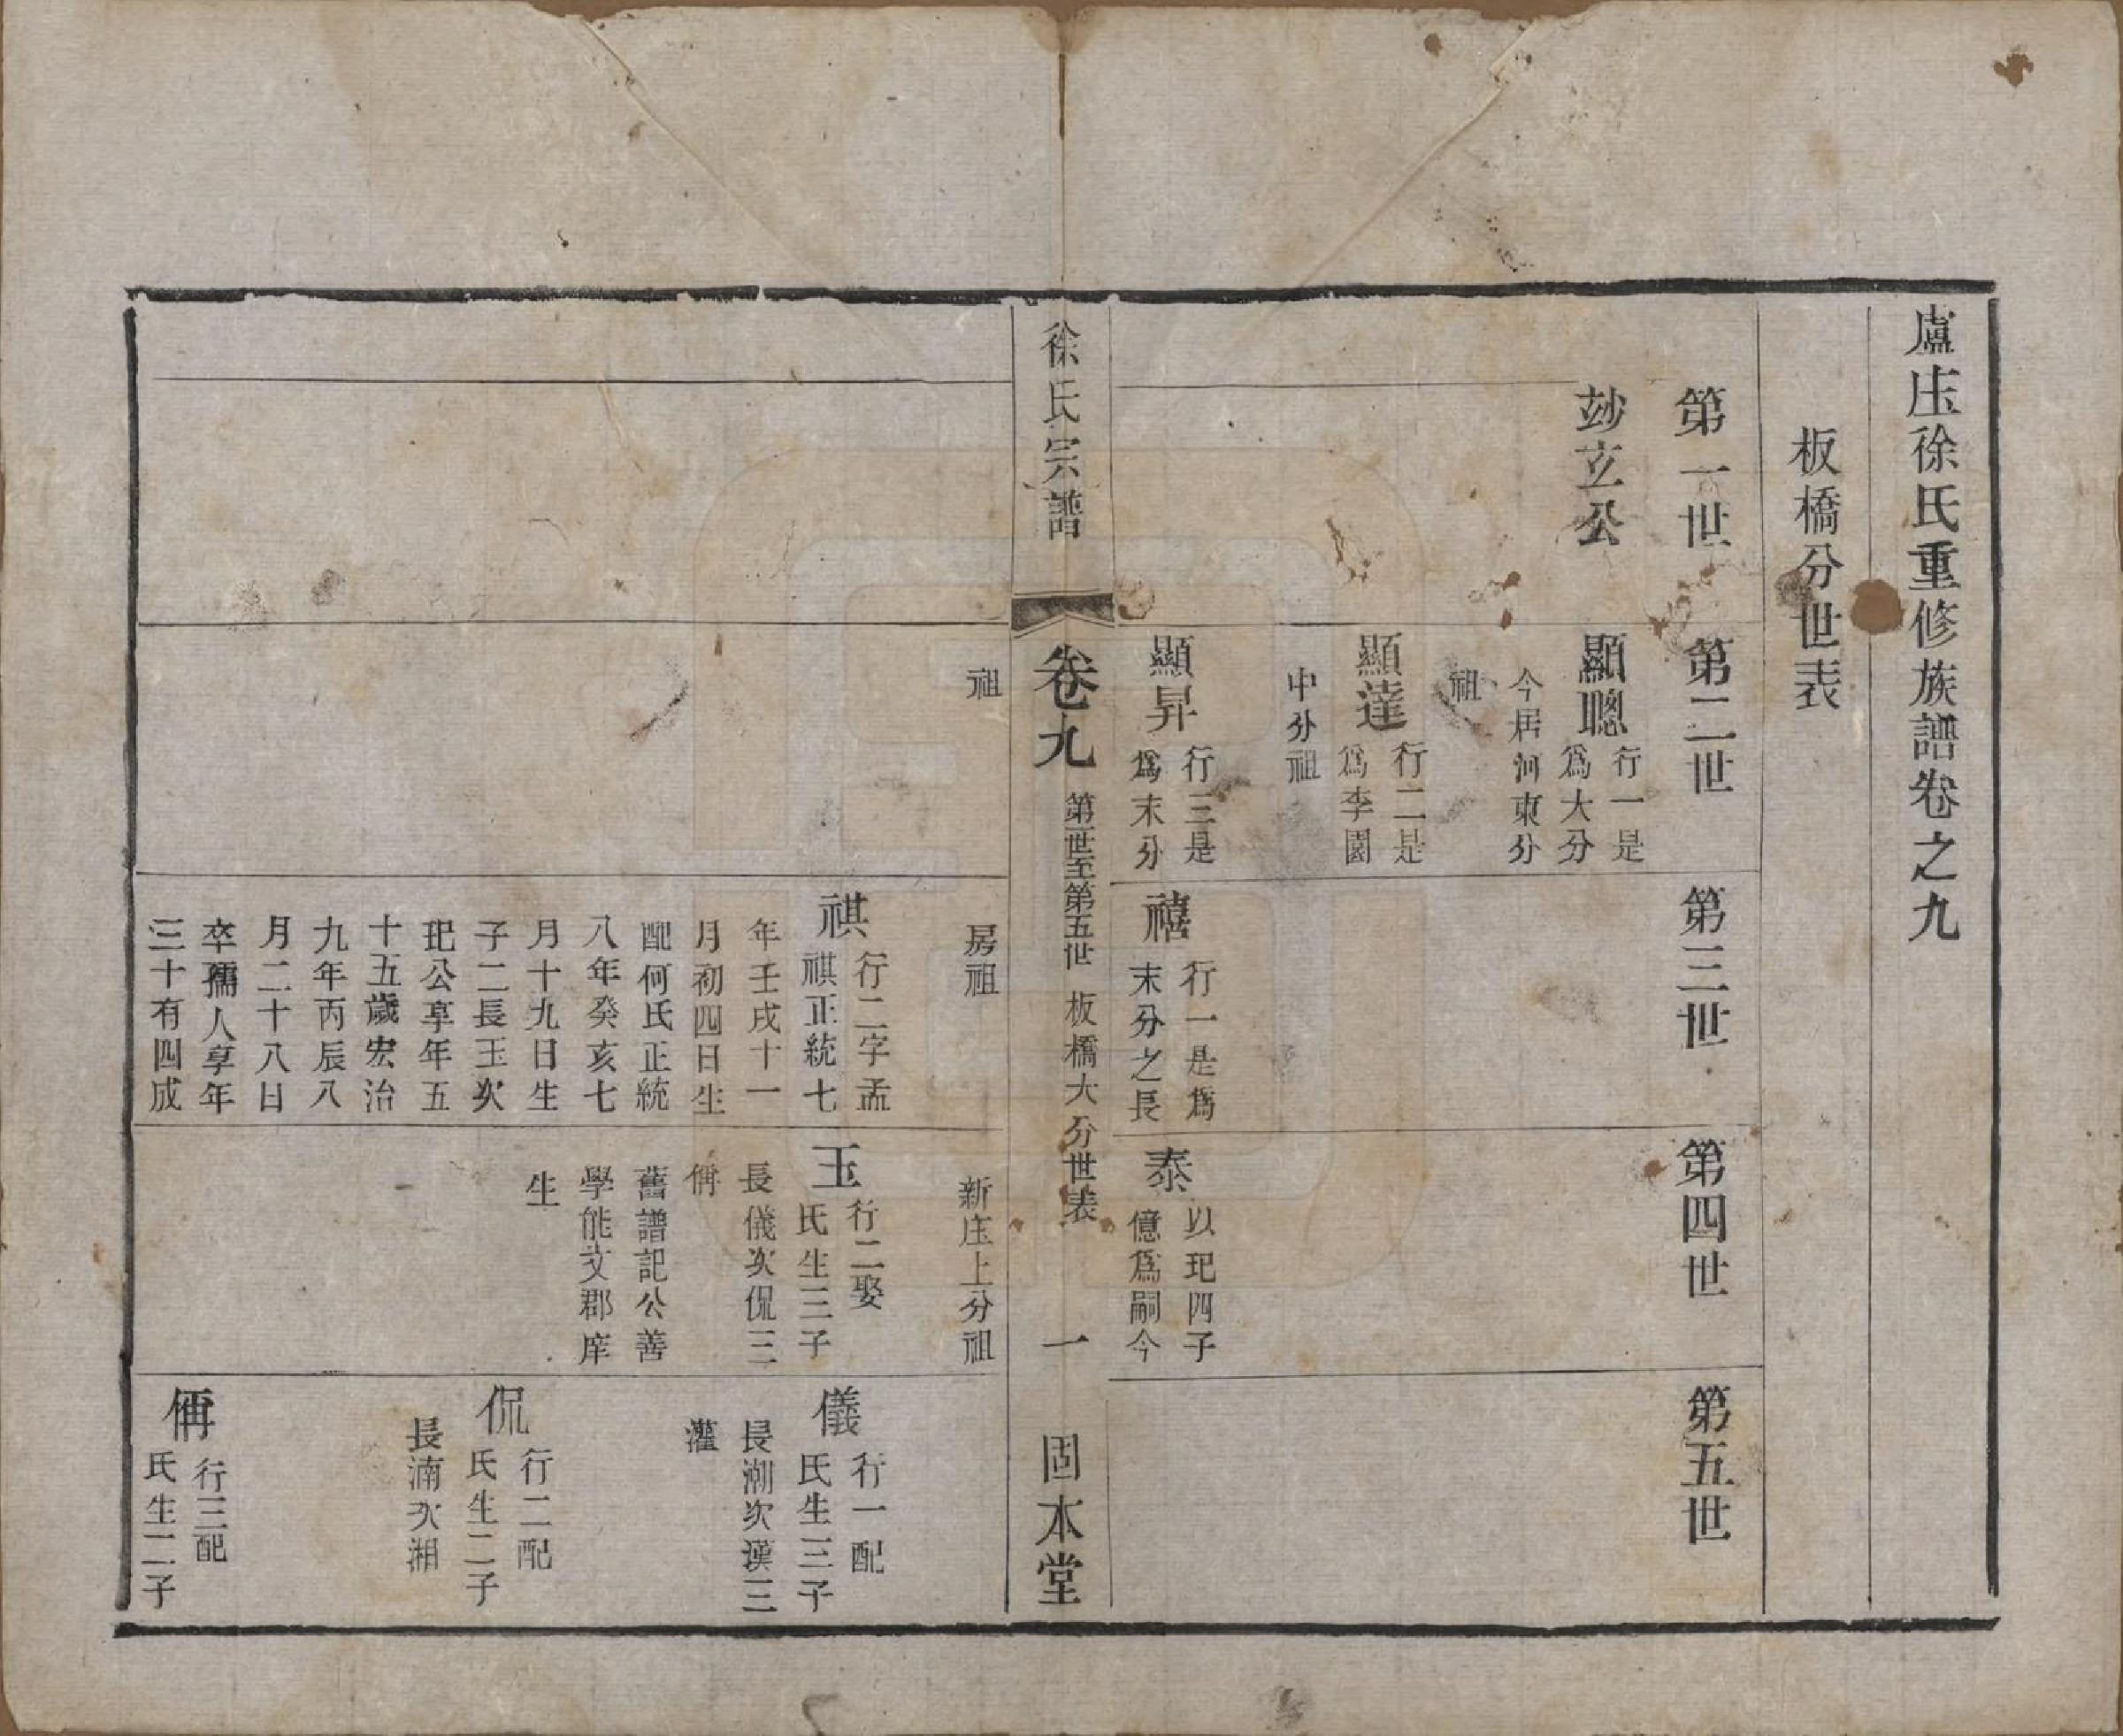 盧庄徐氏重修族譜卷之九
板橋分世表
第一世
第二世
第三世
第四世
第五世
玅玄公
顯聰
行一是
為大分
今居河東分
祖
顯達
行二是
為李園
中分祖
顯昇
行三是
為末分
禧
行一是為
末分之長
泰
以玘四子
億為嗣今
徐氏宗譜
卷九
第一世至第五世
板橋大分世表
一
固本堂
祖
房祖
新庄上分祖
祺
行二字孟
祺正統七
年壬戌十一
月初四日生
配何氏正統
八年癸亥七
月十九日生
子二長玉次
玘公享年五
十五歲宏治
九年丙辰八
月二十八日
卒孺人享年
三十有四成
玉
行二娶
氏生三子
長儀次侃三
偁
舊譜記公善
學能文郡庠
生
儀
行一配
氏生三子
長潮次漢三
灌
侃
行二配
氏生二子
長湳次湘
偁
行三配
氏生二子